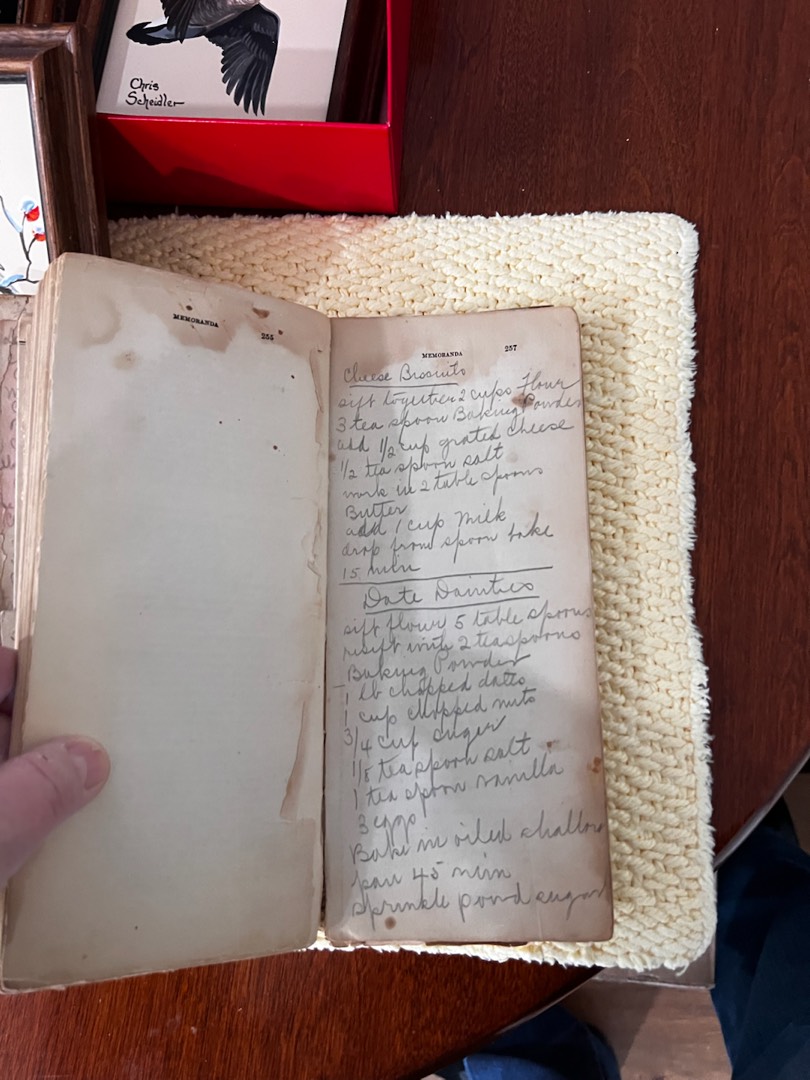 Chris
Scheidler
MEMORANDA
255
MEMORANDA
257
Cheese Biscuits
sift together 2 cups Flour
3 tea spoon Baking Powder
add 1/2 cup grated cheese
1/2 tea spoon salt
work in 2 table spoons
Butter
add 1 cup Milk
drop from spoon bake
15 min
Date Dainties
sift flour 5 table spoons
resift with 2 teaspoons
Baking Powder
1 lb chopped dates
1 cup chopped nuts
3/4 cup suger
1/8 tea spoon salt
1 tea spoon vanilla
3 eggs
Bake in oiled shallow
pan 45 min
sprinkle powd sugar